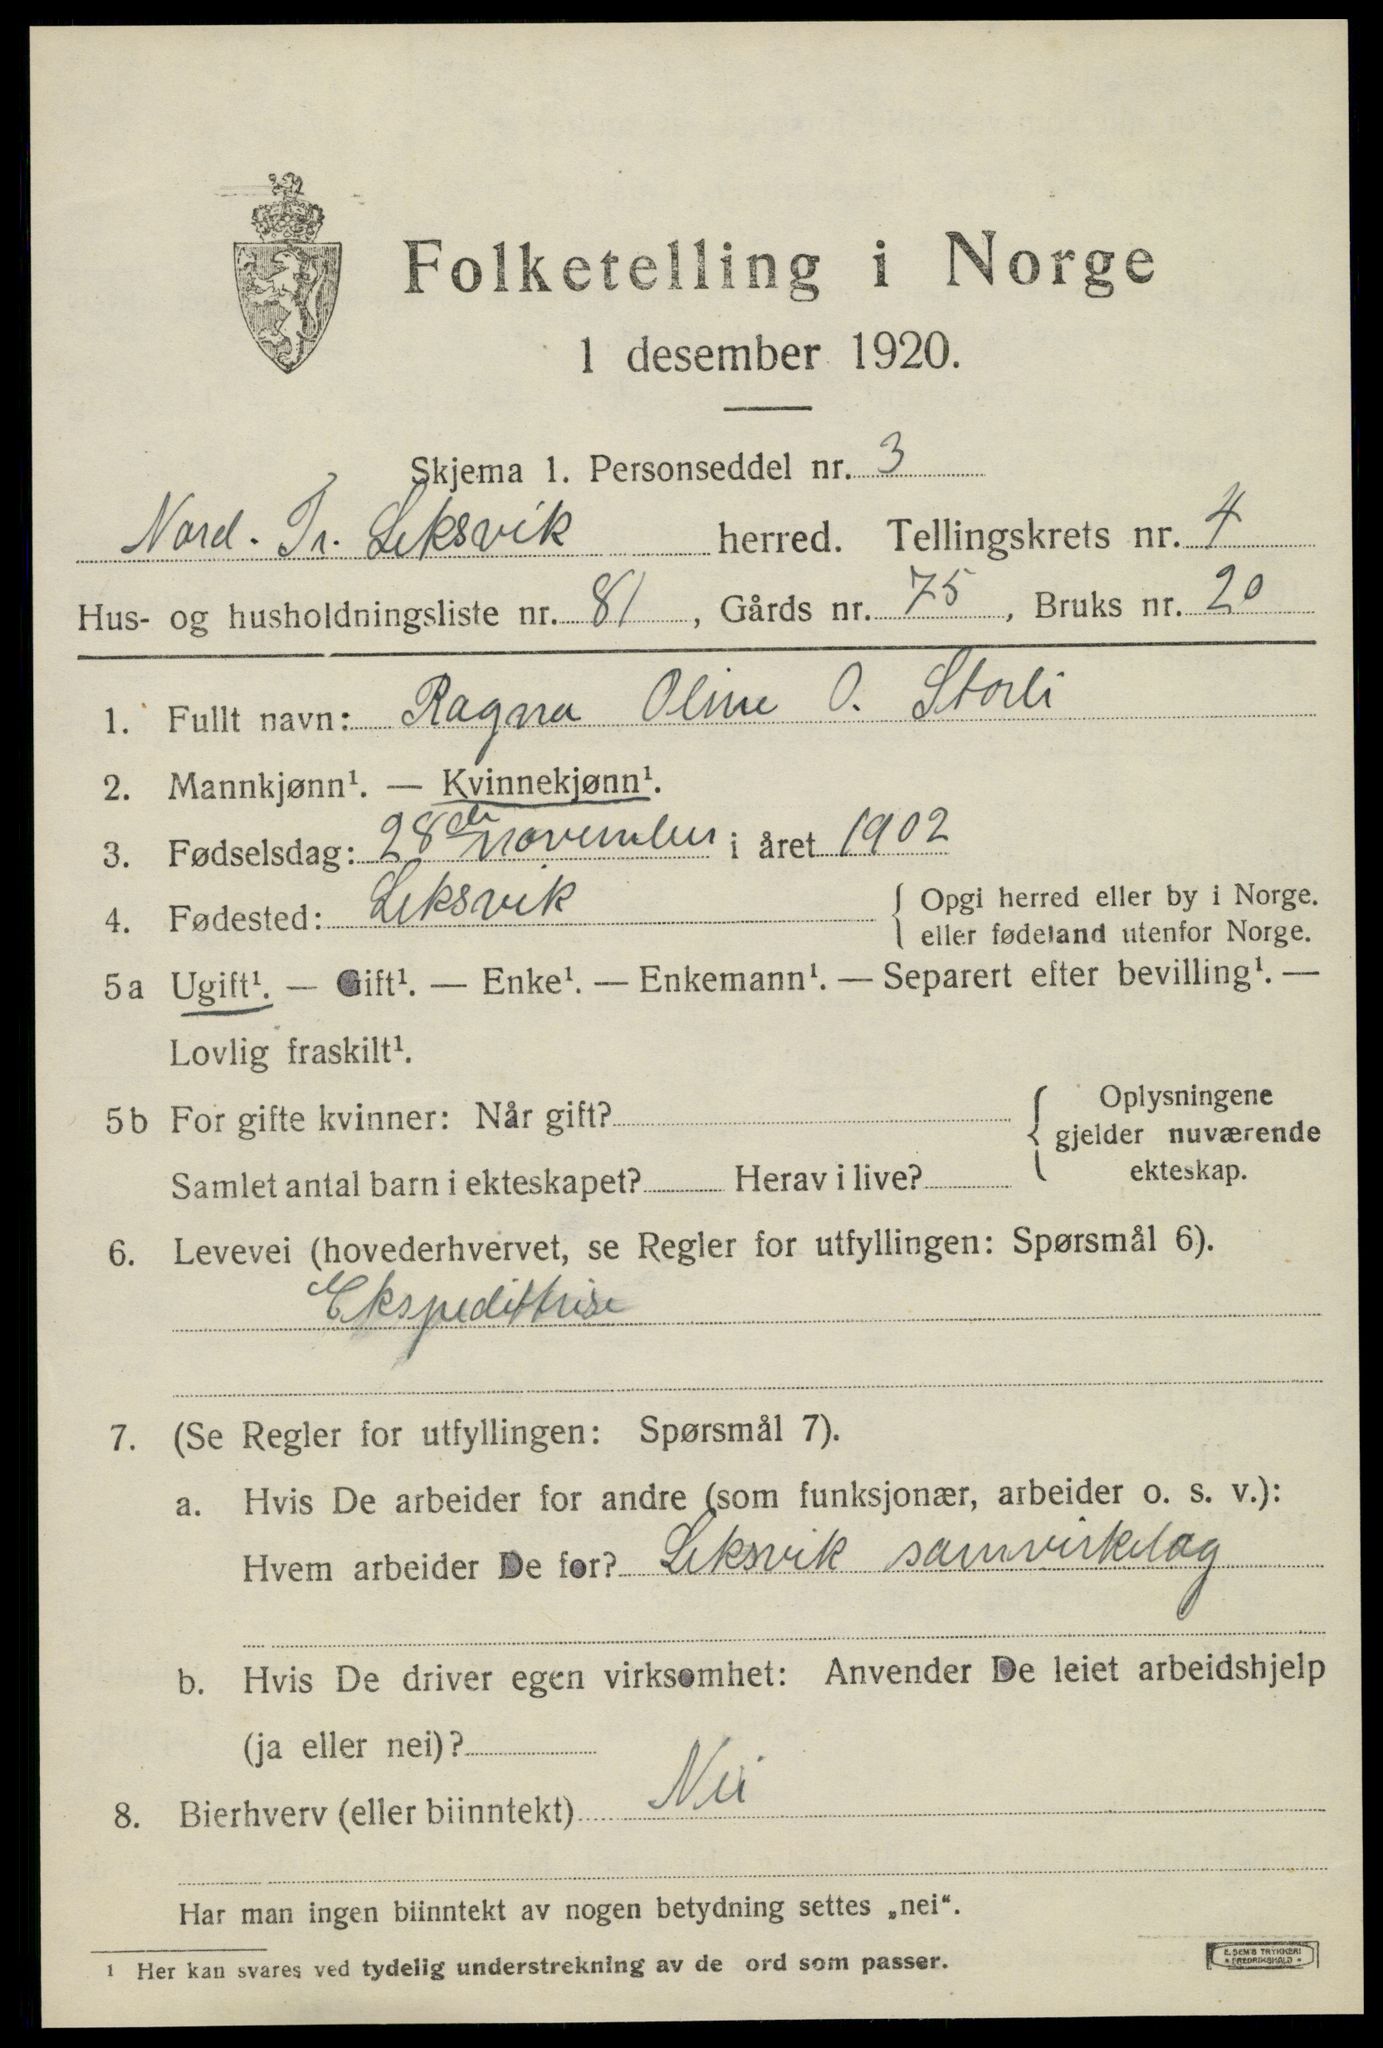 Folketelling i Norge
1 desember 1920.
Skjema 1. Personseddel nr. 3
Nord. Tr. Leksvik herred. Tellingskrets nr. 4
Hus- og husholdningsliste nr. 81, Gårds nr. 75, Bruks nr. 20
1. Fullt navn: Ragna Oline O. Storli
2. Mannkjønn¹. — Kvinnekjønn¹.
3. Fødselsdag: 28de november i året 1902
4. Fødested: Leksvik { Opgi herred eller by i Norge.
eller fødeland utenfor Norge.
5a Ugift¹. — Gift¹. — Enke¹. — Enkemann¹. — Separert efter bevilling¹. —
Lovlig fraskilt¹.
5b For gifte kvinner: Når gift? { Oplysningene
gjelder nuværende
Samlet antal barn i ekteskapet? Herav i live? ekteskap.
6. Levevei (hovederhvervet, se Regler for utfyllingen: Spørsmål 6).
Ekspedittrise
7. (Se Regler for utfyllingen: Spørsmål 7).
a. Hvis De arbeider for andre (som funksjonær, arbeider o. s. v.):
Hvem arbeider De for? Leksvik samvirkelag
b. Hvis De driver egen virksomhet: Anvender De leiet arbeidshjelp
(ja eller nei)?
8. Bierhverv (eller biinntekt) Nei
Har man ingen biinntekt av nogen betydning settes „nei“.
¹ Her kan svares ved tydelig understrekning av de ord som passer.
E. SEM'S TRYKKERI
• FREDRIKSHALD •